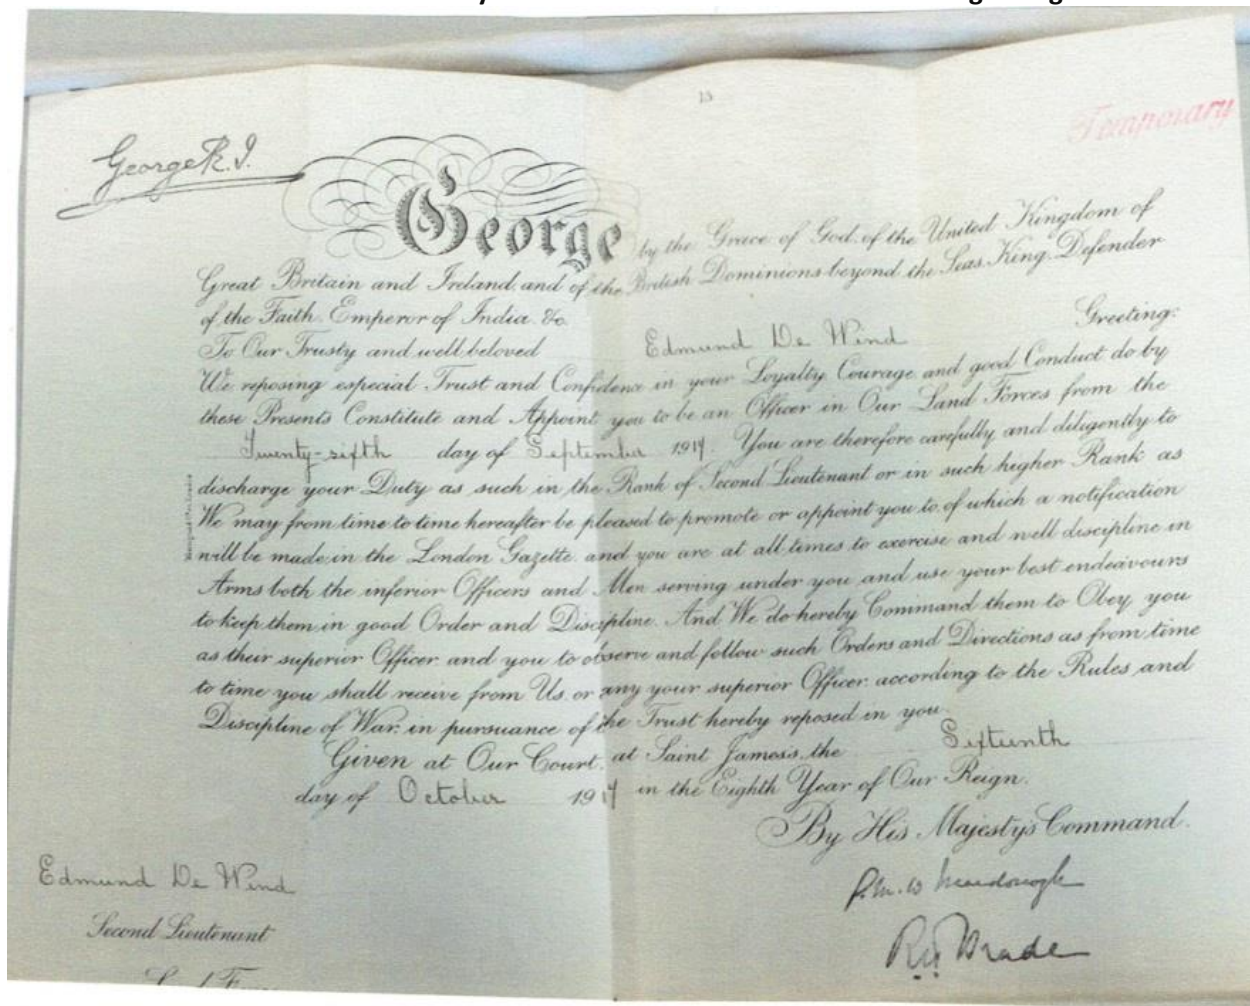 13
Temporary
George R.I.
George by the Grace of God, of the United Kingdom of
Great Britain and Ireland, and of the British Dominions beyond the Seas, King, Defender
of the Faith, Emperor of India, &c.
To Our Trusty and well beloved Edmund De Wind Greeting:
We reposing especial Trust and Confidence in your Loyalty, Courage, and good Conduct, do by
these Presents Constitute and Appoint you to be an Officer in Our Land Forces from the
Twenty-sixth day of September 1917. You are therefore carefully and diligently to
discharge your Duty as such in the Rank of Second Lieutenant or in such higher Rank as
We may from time to time hereafter be pleased to promote or appoint you to, of which a notification
will be made in the London Gazette, and you are at all times to exercise and well discipline in
Arms both the inferior Officers and Men serving under you and use your best endeavours
to keep them in good Order and Discipline. And We do hereby Command them to Obey you
as their superior Officer, and you to observe and follow such Orders and Directions as from time
to time you shall receive from Us, or any your superior Officer, according to the Rules and
Discipline of War, in pursuance of the Trust hereby reposed in you.
Given at Our Court, at Saint James's, the Sixteenth
day of October 1917 in the Eighth Year of Our Reign.
By His Majesty's Command.
Edmund De Wind
Second Lieutenant